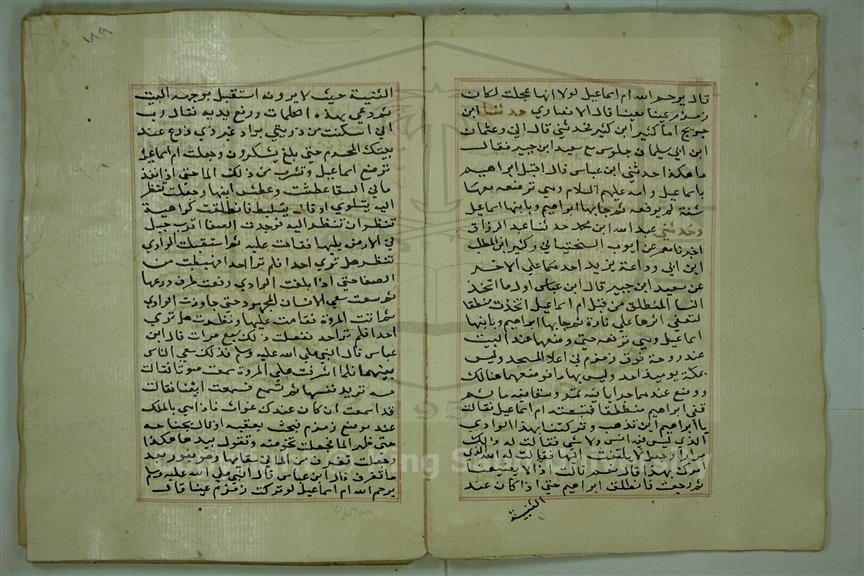 قال يرحم الله ام اسماعيل لولا انها عجلت لكان
زمزم عينا معينا قال الانصاري حدثنا ابن
جريج اما كثير ابن كثير فحدثني قال اني وعثمان
ابن ابي سليمان جلوس مع سعيد ابن جبير فقال
ما هكذا حدثني ابن عباس قال اقبل ابراهيم
باسماعيل وامه عليهم السلام وهي ترضعه معها
شنة لم يرفعه ثم جا بها ابراهيم وبابنها اسماعيل
وحدثني عبد الله ابن محمد حدثنا عبد الرزاق
اخبرنا معمر عن ايوب السختياني وكثير ابن المطلب
ابن ابي وداعة يزيد احدهما علي الاخر
عن سعيد ابن جبير قال ابن عباس اول ما اتخذ
النسا المنطق من قبل ام اسماعيل اتخذت منطقا
لتعفي اثرها علي سارة ثم جا بها ابراهيم وبابنها
اسماعيل وهي ترضعه حتي وضعها عند البيت
عند دوحة فوق زمزم في اعلا المسجد وليس
بمكة يوميذ احد وليس بها ما فوضعهما هنالك
ووضع عندهما جرابا فيه تمر وسقا فيه ما ثم
قفي ابراهيم منطلقا فتبعته ام اسماعيل فقالت
يا ابراهيم اين تذهب وتتركنا بهذا الوادي
الذي ليس فيه انس ولا شي فقالت له ذالك
مرارا وجعل لا يلتفت اليها فقالت له الله الذي
امرك بهذا قال نعم قالت اذا لا يضيعنا
ثم رجعت فانطلق ابراهيم حتي اذا كان عند
الثنية
١٨٩
الثنية حيث لا يرونه استقبل بوجهه البيت
ثم دعي بهذه الكلمات ورفع يديه فقال رب
اني اسكنت من ذريتي بواد غير ذي زرع عند
بيتك المحرم حتي بلغ يشكرون وجعلت ام اسماعيل
ترضع اسماعيل وتشرب من ذلك الما حتي اذا نفذ
ما في السقا عطشت وعطش ابنها وجعلت تنظر
اليه يتلوي او قال يتلبط فانطلقت كراهية
تنظر ان تنظر اليه فوجدت الصفا اقرب جبل
في الارض يليها فقامت عليه ثم استقبلت الوادي
تنظر هل تري احدا فلم تر احدا فهبطت من
الصفا حتي اذا بلغت الوادي رفعت طرف درعها
ثم سعت سعي الانسان المجهود حتي جاوزت الوادي
ثم اتت المروة فقامت عليها ونظرت هل تري
احدا فلم تر احد ففعلت ذلك سبع مرات قال ابن
عباس قال النبي صلي الله عليه وسلم فذلك سعي الناس
بينهما فلما اشرفت علي المروة سمعت صوتا فقالت
صه تريد نفسها ثم تسمع فسمعت ايضا فقالت
قد اسمعت ان كان عندك غواث فاذا هي بالملك
عند موضع زمزم فبحث بعقبه او قال بجناحه
حتي ظهر الما فجعلت تحوضه وتقول بيدها هكذا
وجعلت تغرف من الما في سقايها وهو يفور بعد
ما تغرف قال ابن عباس قال النبي صلي الله عليه وسلم
يرحم الله ام اسماعيل لو تركت زمزم عينا قال